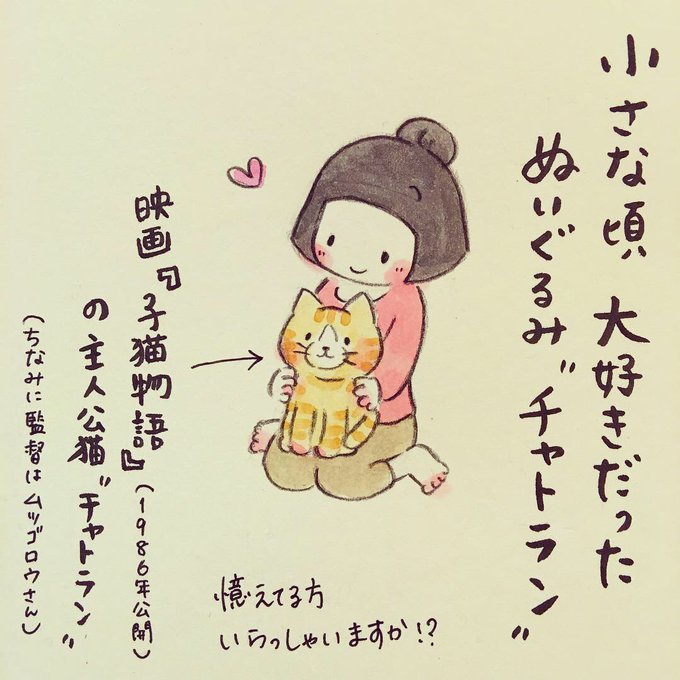 小さな頃 大好きだった
ぬいぐるみ"チャトラン"
映画『子猫物語』(1986年公開)
の主人公猫"チャトラン"
(ちなみに監督はムツゴロウさん)
憶えてる方
いらっしゃいますか!?